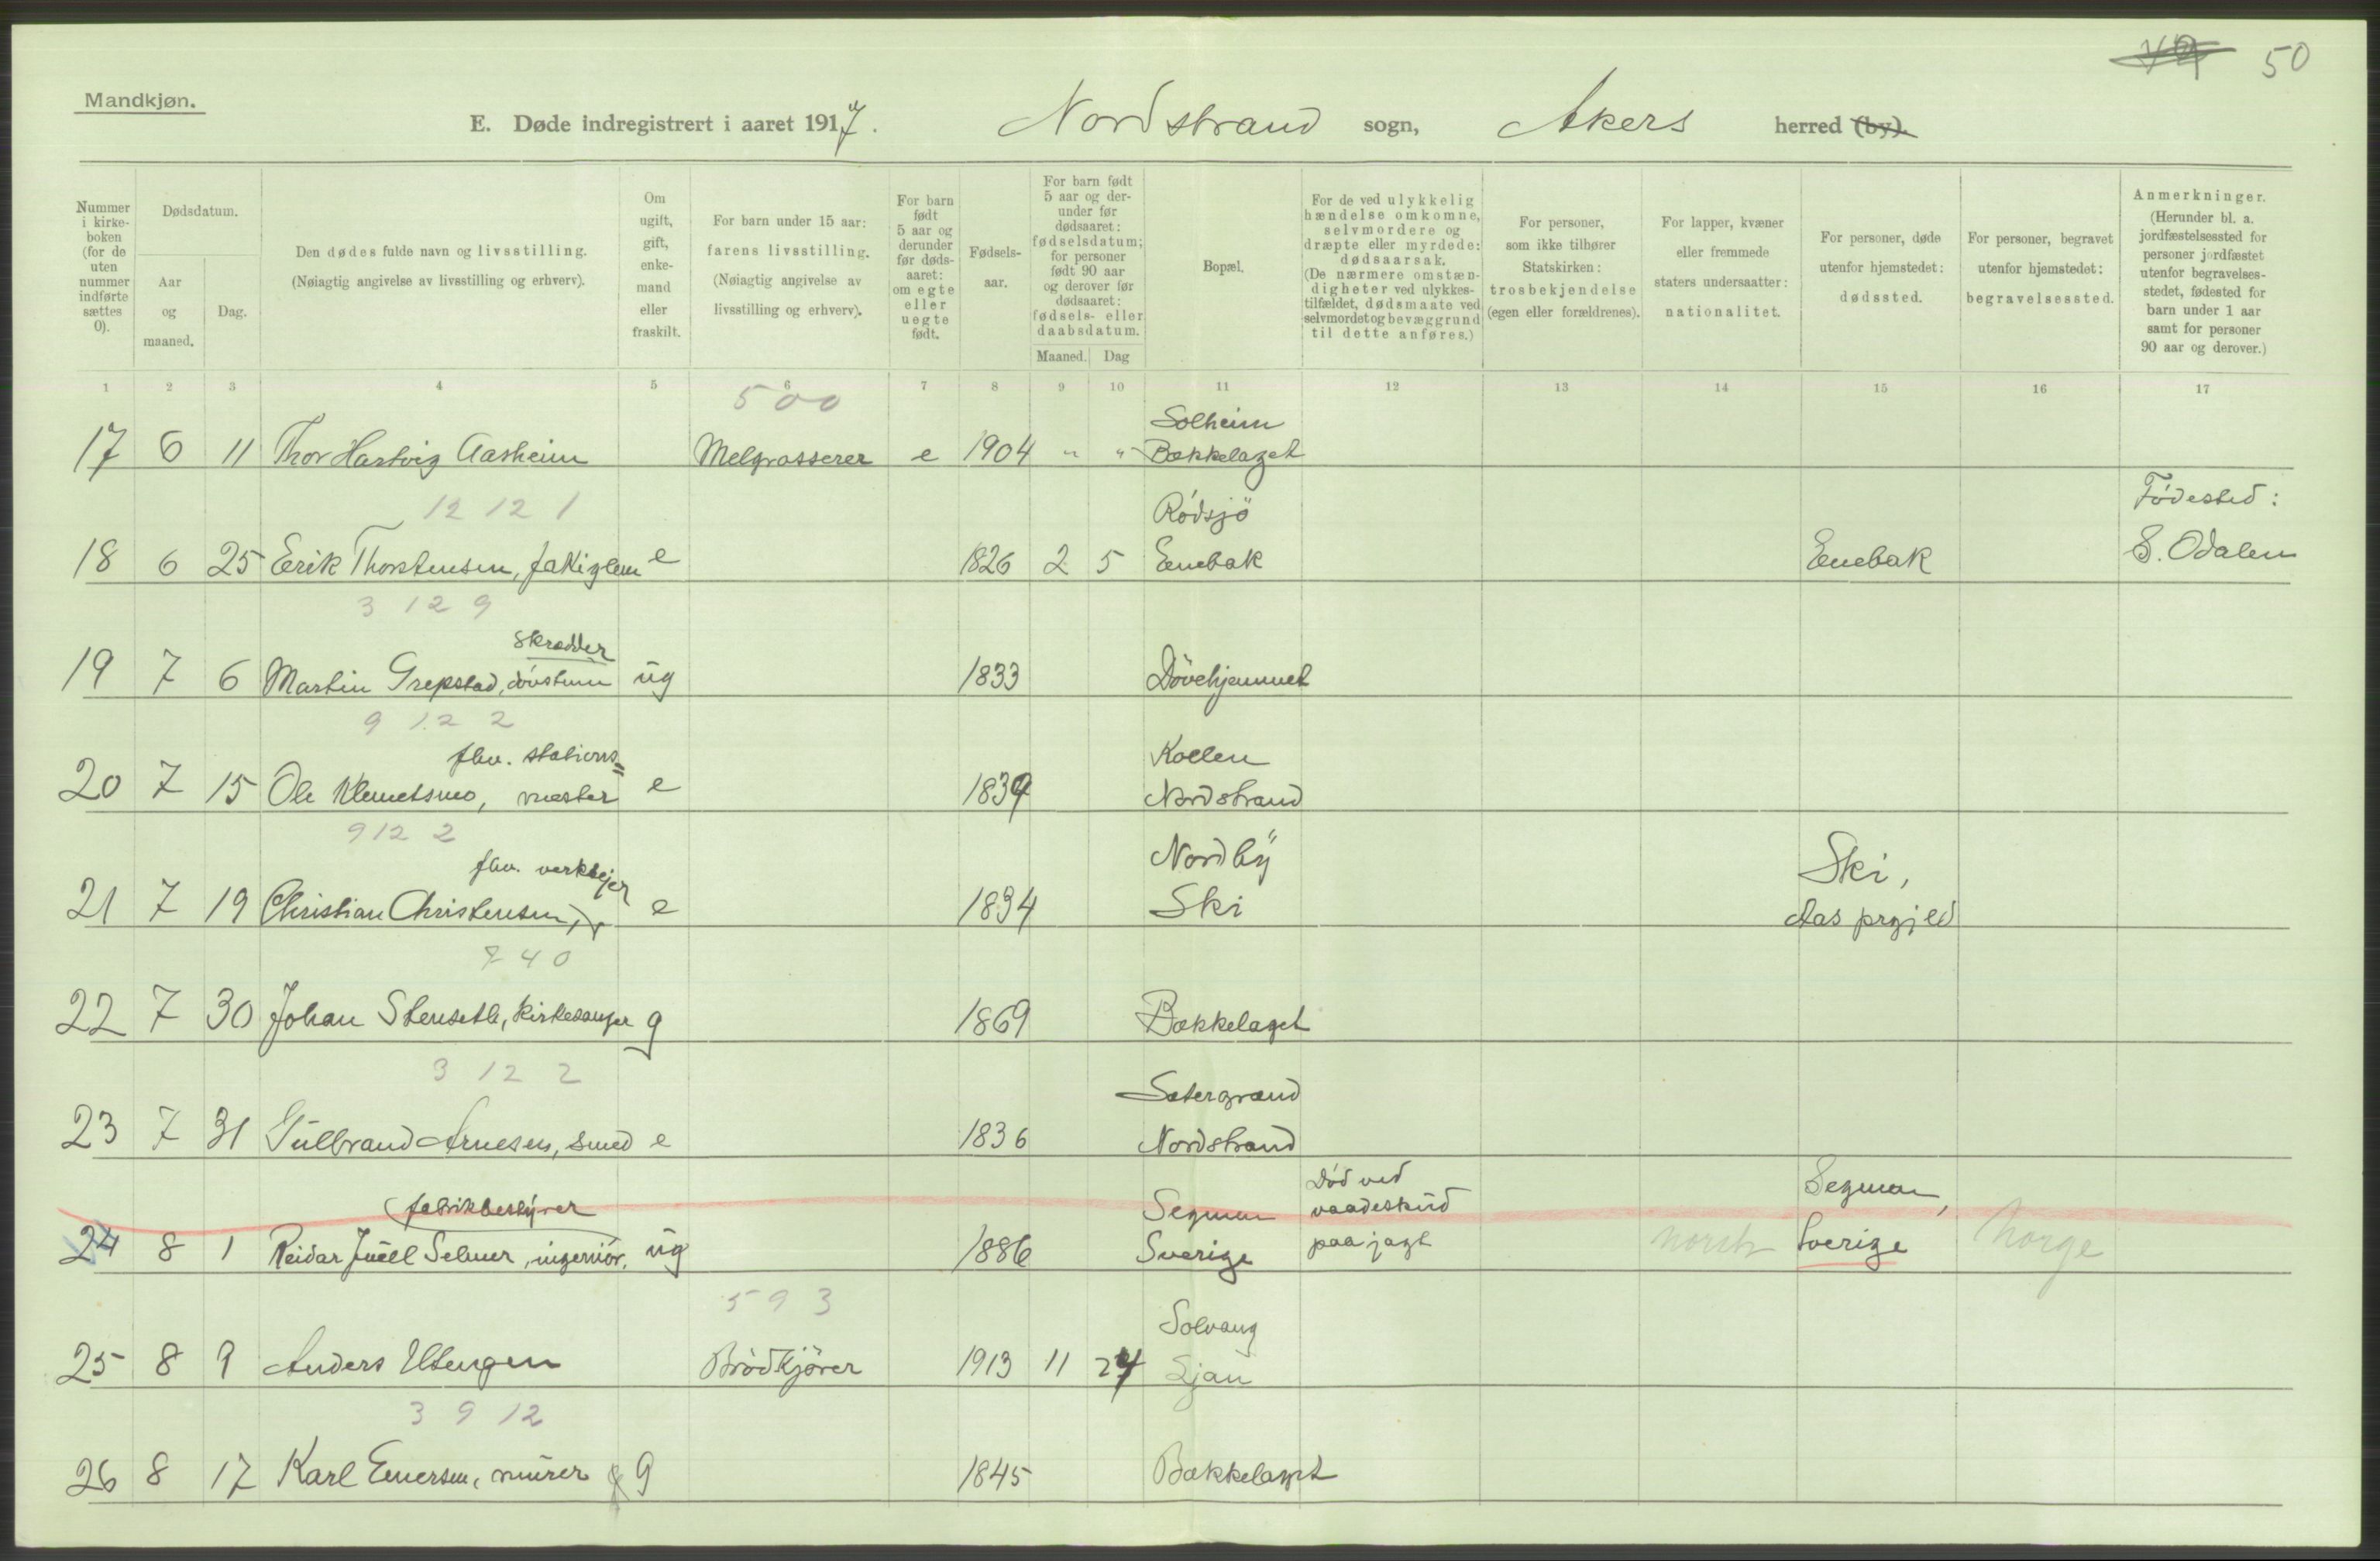 49 50
Mandkjøn.
E. Døde indregistrert i aaret 1917. Nordstrand sogn, Akers herred (by).
Nummer i kirke-boken (for de uten nummer indførte sættes 0).
Dødsdatum.
Aar og maaned.
Dag.
Den dødes fulde navn og livsstilling.
(Nøiagtig angivelse av livsstilling og erhverv).
Om ugift, gift, enke-mand eller fraskilt.
For barn under 15 aar:
farens livsstilling.
(Nøiagtig angivelse av livsstilling og erhverv).
For barn født 5 aar og derunder før døds-aaret: om egte eller uegte født.
Fødsels-aar.
For barn født 5 aar og der-under før dødsaaret: fødselsdatum; for personer født 90 aar og derover før dødsaaret: fødsels- eller daabsdatum.
Maaned. Dag
Bopæl.
For de ved ulykkelig hændelse omkomne, selvmordere og dræpte eller myrdede: dødsaarsak.
(De nærmere omstæn-digheter ved ulykkes-tilfældet, dødsmaate ved selvmordet og bevæggrund til dette anføres.)
For personer, som ikke tilhører Statskirken: trosbekjendelse (egen eller forældrenes).
For lapper, kvæner eller fremmede staters undersaatter: nationalitet.
For personer, døde utenfor hjemstedet: dødssted.
For personer, begravet utenfor hjemstedet: begravelsessted.
Anmerkninger.
(Herunder bl. a. jordfæstelsessted for personer jordfæstet utenfor begravelses-stedet, fødested for barn under 1 aar samt for personer 90 aar og derover.)
1 2 3 4 5 6 7 8 9 10 11 12 13 14 15 16 17
500
Solheim
17 6 11 Thor Hartvig Aasheim Melgrosserer e 1904 " " Bækkelaget
12 12 1
Rødsjö Fødested:
18 6 25 Erik Thorstensen, fattiglem e 1826 2 5 Enebak Enebak S. Odalen
3 12 9
skrædder
19 7 6 Martin Grepstad, døvstum ug 1833 Døvehjemmet
9 12 2
fhv. stations= Kollen
20 7 15 Ole Klemetsmo, mester e 1839 Nordstrand
9 12 2
fhv. verksejer Nordby Ski,
21 7 19 Christian Christensen, e 1834 Ski Aas prgjeld
7 4 0
22 7 30 Johan Stenseth, kirkesanger g 1869 Bækkelaget
3 12 2
Sætergrænd
23 7 31 Gulbrand Arnesen, smed e 1836 Nordstrand
fabrikbestyrer Segmon Død ved vaadeskud Segmon,
24 8 1 Reidar Juell Selmer, ingeniør, ug 1886 Sverige paa jagt norsk Sverige Norge
593
Solvang
25 8 9 Anders Utengen Brødkjører 1913 11 24 Ljan
3 9 12
26 8 17 Karl Enersen, murer g 1845 Bækkelaget